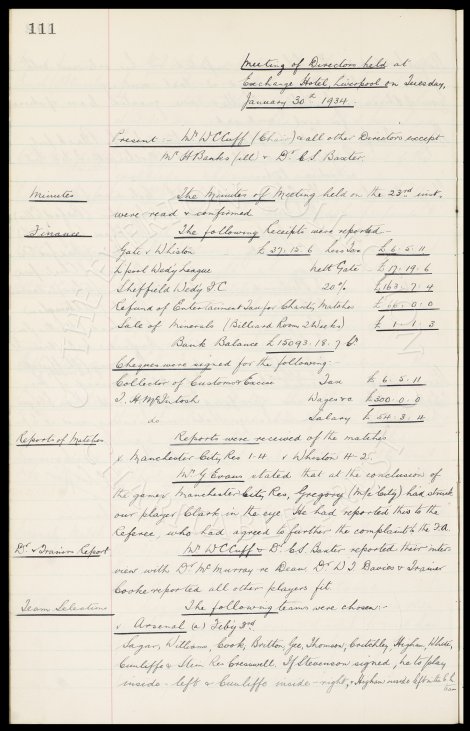 111
Meeting of Directors held at
Exchange Hotel, Liverpool on Tuesday,
January 30th 1934.
Present :- Mr W Cuff (Chair) & all other Directors except
Mr H Banks (ill) & Dr. C S Baxter.
Minutes
The Minutes of Meeting held on the 23rd inst.
were read & confirmed
Finance
The following Receipts were reported :-
Gate v Whiston £ 37. 15. 6 less Tax £ 6. 5. 11
L'pool Wedy League Nett Gate £ 17. 19. 6
Sheffield Wedy F C 20% £163. 7. 4
Refund of Entertainment Tax for Charity Matches £ 66. 0. 0
Sale of Minerals (Billiard Room 2 Weeks) £ 1. 1. 3
Bank Balance £15093. 18. 7 Cr
Cheques were signed for the following :-
Collector of Customs & Excise Tax £ 6. 5. 11
T. H. McIntosh Wages &c £300. 0. 0
do Salary £ 54. 3. 4
Reports of Matches
Reports were received of the matches
v Manchester City Res 1-4 v Whiston 4-2.
Mr G Evans stated that at the conclusion of
the game v Manchester City Res, Gregory (M/c City) had struck
our player Clark in the eye. He had reported this to the
Referee, who had agreed to further the complaint to the F.A.
Dr & Trainers Report
Mr W Cuff & Dr. C S Baxter reported their inter-
view with Dr McMurray re Dean. Dr D T Davies & Trainer
Cooke reported all other players fit.
Team Selections
The following teams were chosen :-
v Arsenal (a) Feb'y 3rd
Sagar, Williams, Cook, Britton, Gee, Thomson, Critchley, Higham, White,
Cunliffe & Stein Res Cresswell. If Stevenson signed, he to play
inside-left & Cunliffe inside-right, & Higham inside left